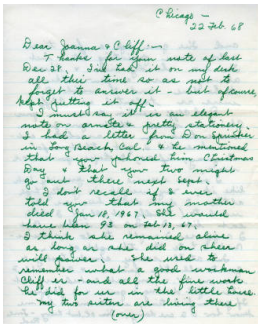 Chicago —
22 Feb. 68
Dear Joanna & Cliff: —
Thanks for your note of last
Dec 28. I've had it on my desk
all this time so as not to
forget to answer it — but of course,
kept putting it off.
I must say it is an elegant
note on ornate & pretty stationery.
I had a letter from Don
in Long Beach, Cal. & he mentioned
that you phoned him Christmas
Day & that you two might
go out there next Sept.
I don't recall if I ever
told you that my mother
died Jan 18, 1967. She would
have been 93 on Feb 13, 67.
I think she remained alive
as long as she did on sheer
will power. She used to
remember what a good workman
Cliff is — and all the fine work
he did for us in the little house.
My two sisters are living there
(over)